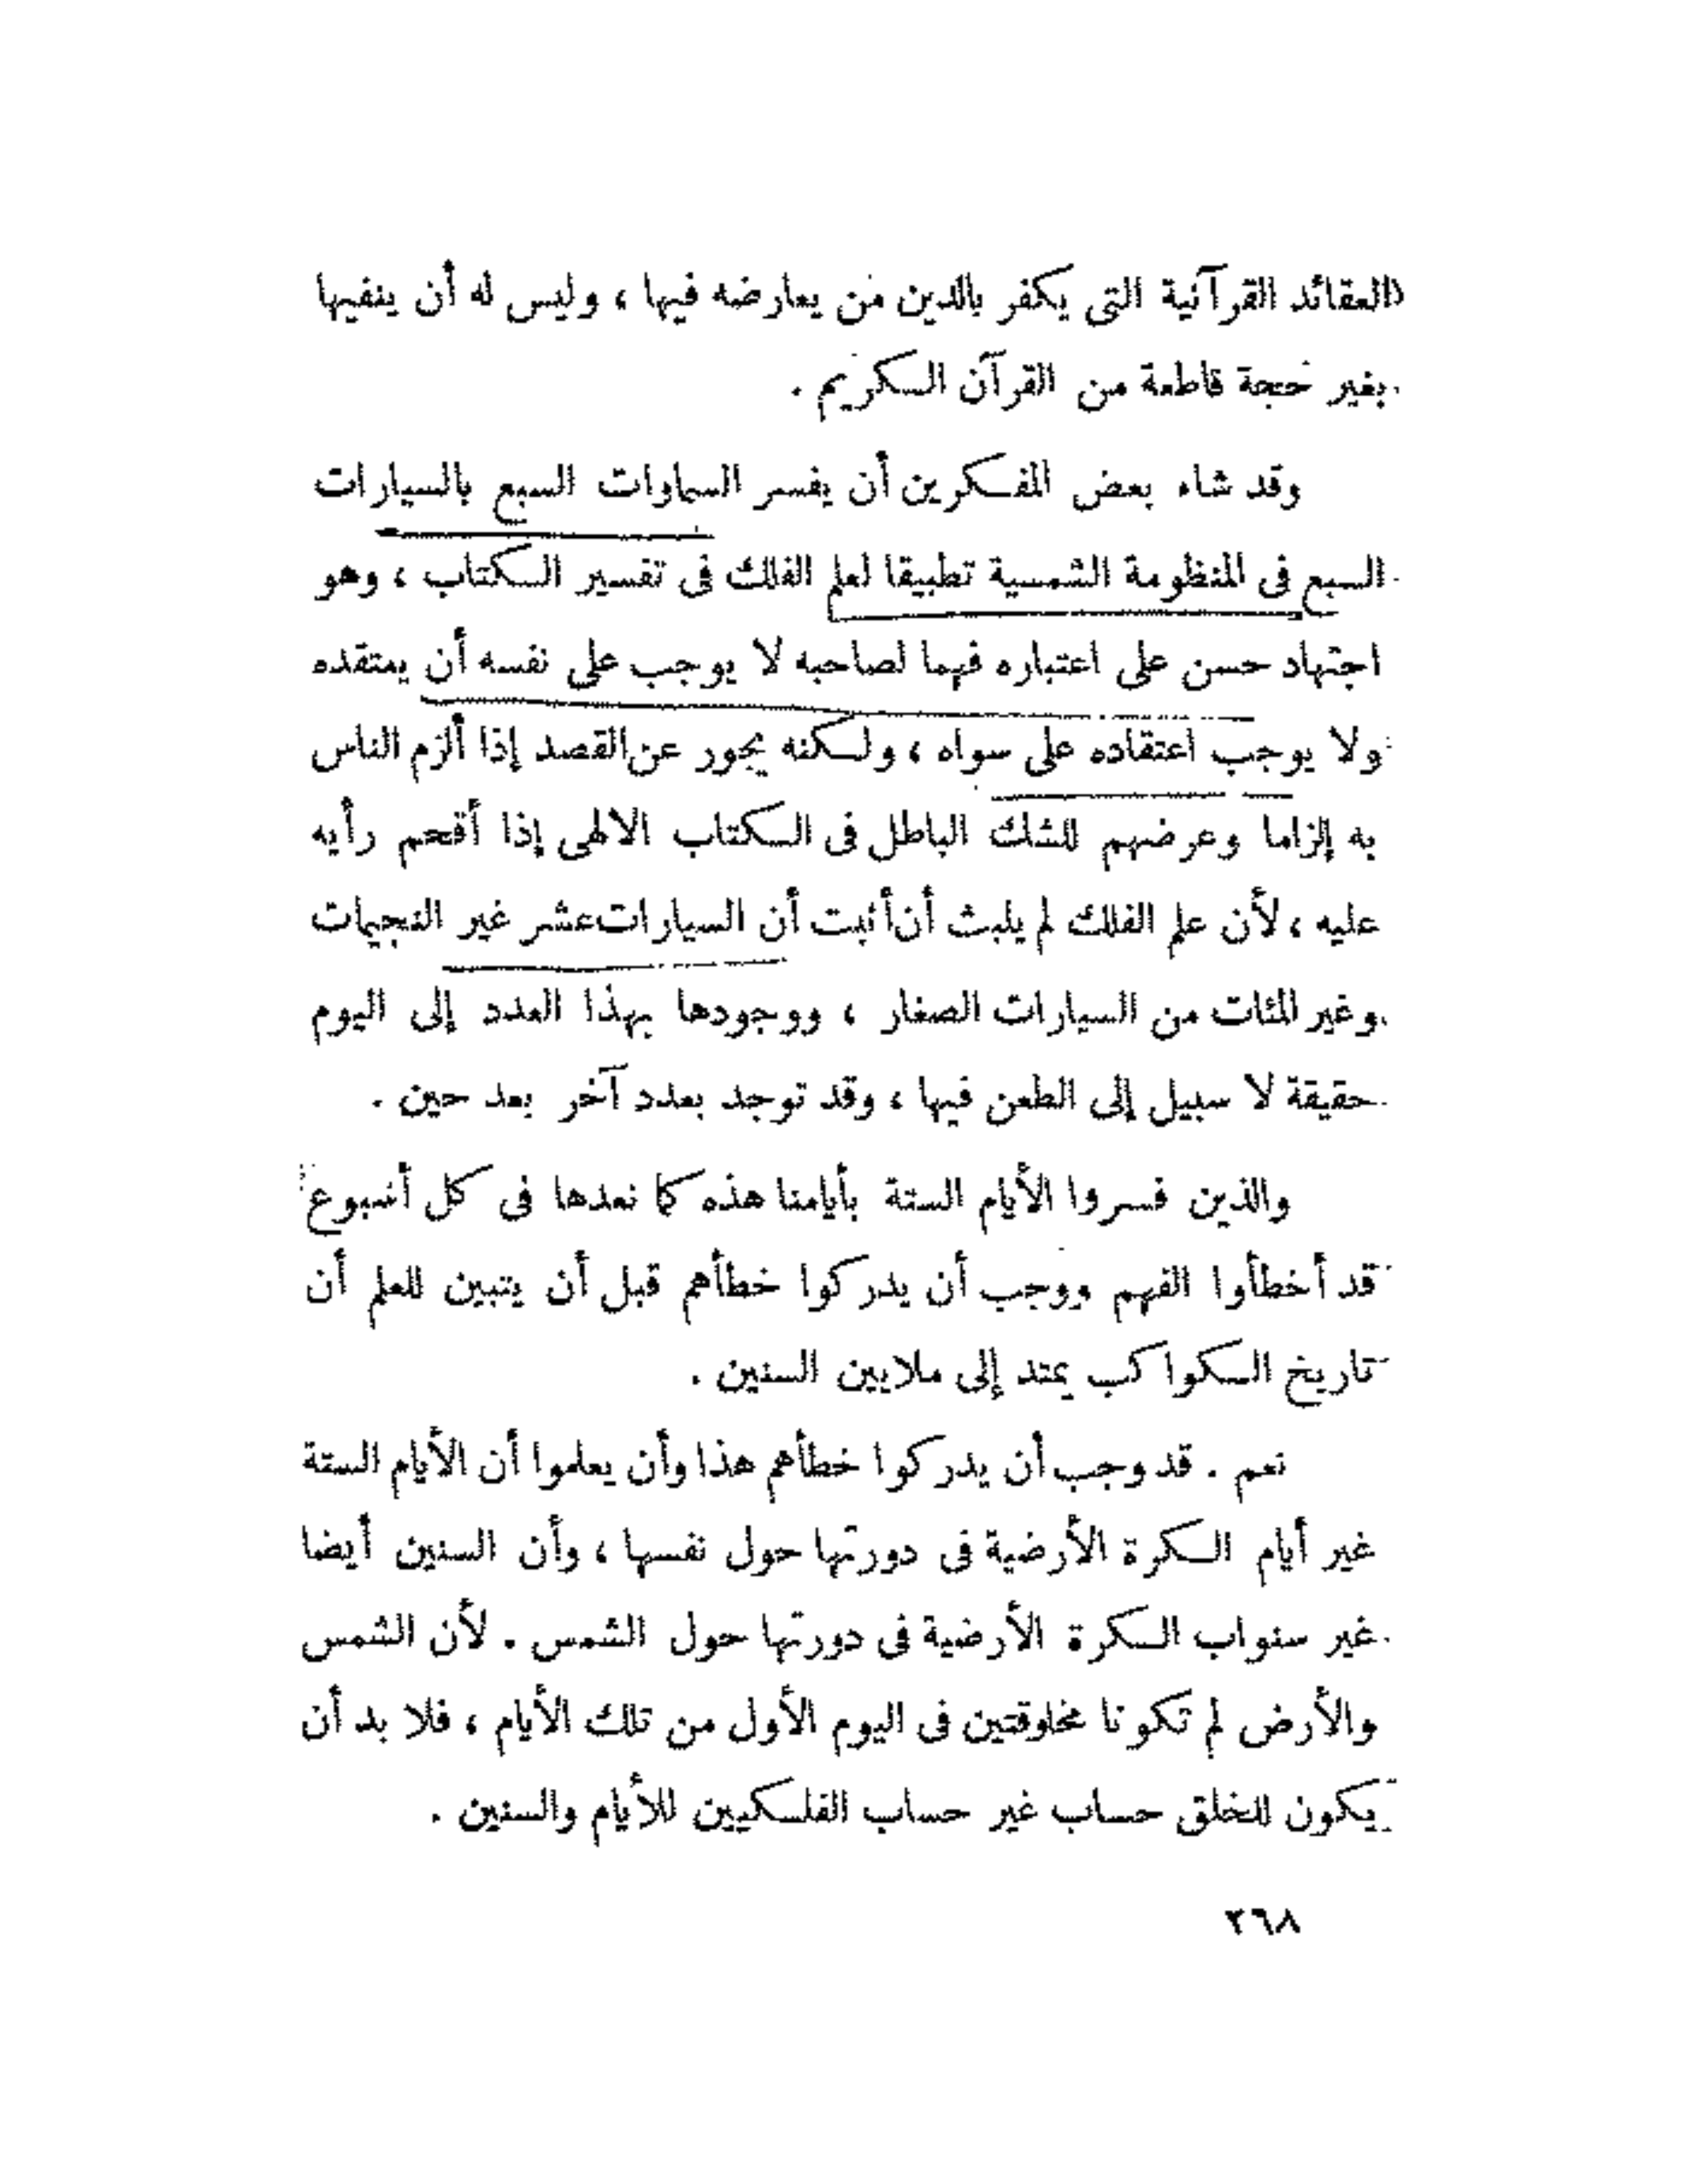 العقائد القرآنية التى يكفر بالدين من يعارضه فيها ، وليس له أن ينفيها
بغير حجة قاطعة من القرآن الكريم .
وقد شاء بعض المفكرين أن يفسر السماوات السبع بالسيارات
السبع فى المنظومة الشمسية تطبيقا لعلم الفلك فى تفسير الكتاب ، وهو
اجتهاد حسن على اعتباره فهما لصاحبه لا يوجب على نفسه أن يعتقده
ولا يوجب اعتقاده على سواه ، ولكنه يجور عن القصد إذا ألزم الناس
به إلزاما وعرضهم للشك الباطل فى الكتاب الالهى إذا أقحم رأيه
عليه ، لأن علم الفلك لم يلبث أن أثبت أن السيارات عشر غير النجيمات
وغير المئات من السيارات الصغار ، ووجودها بهذا العدد إلى اليوم
حقيقة لا سبيل إلى الطعن فيها ، وقد توجد بعدد آخر بعد حين .
والذين فسروا الأيام الستة بأيامنا هذه كما نعدها فى كل أسبوع
قد أخطأوا الفهم ووجب أن يدركوا خطأهم قبل أن يتبين للعلم أن
تاريخ الكواكب يمتد إلى ملايين السنين .
نعم . قد وجب أن يدركوا خطأهم هذا وأن يعلموا أن الأيام الستة
غير أيام الكرة الأرضية فى دورتها حول نفسها ، وأن السنين أيضا
غير سنواب الكرة الأرضية فى دورتها حول الشمس . لأن الشمس
والأرض لم تكونا مخلوقتين فى اليوم الأول من تلك الأيام ، فلا بد أن
يكون للخلق حساب غير حساب الفلكيين للأيام والسنين .
٢٦٨